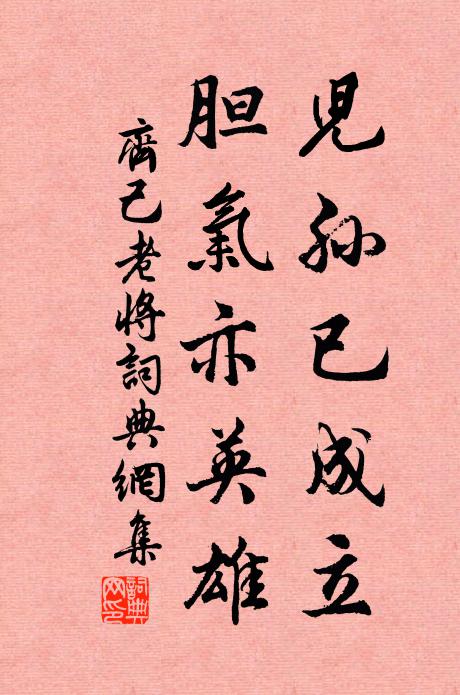 兒孫已成立
胆氣亦英雄
齊己老將詞典網集
詞典網印